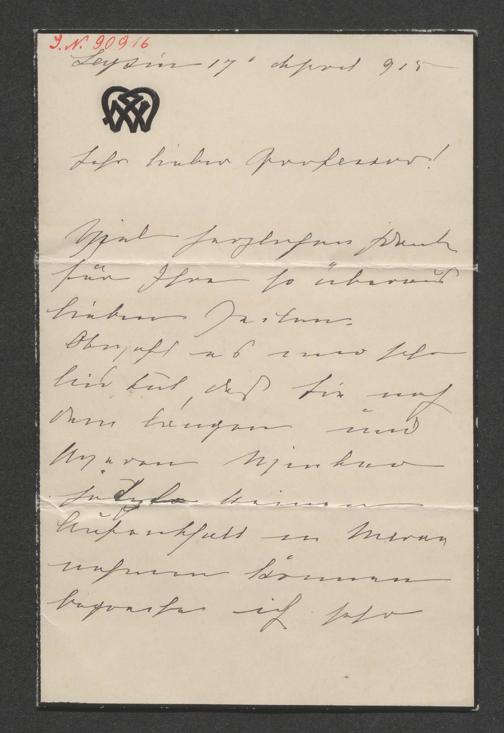 I. N. 90916
Leysin 17 April 915
Sehr lieber Professor!
Viel herzlichen Dank
für Ihre so überaus
lieben Zeilen.
Obzwar es mir sehr
leid tut, daß Sie nach
dem langen und
Winter
keinen
Aufenthalt in Meran
nehmen können
begreife ich sehr